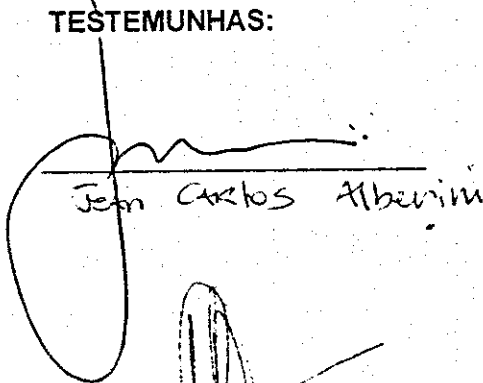 TESTEMUNHAS:
Jean Carlos Alberini